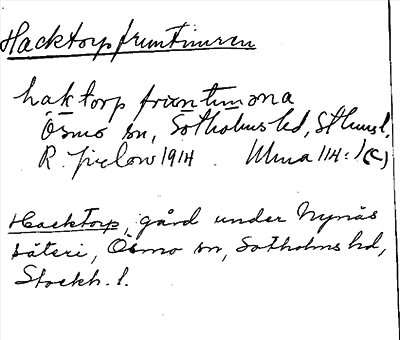 Hacktorpfruntimren
haktorp fruntimona
Ösmo sn, Sotholms hd, Sthlms l.
R. 1914. Ulma 114:1 (c)
Hacktorp, gård under Nynäs
säteri, Ösmo sn, Sotholms hd,
Stockh. l.